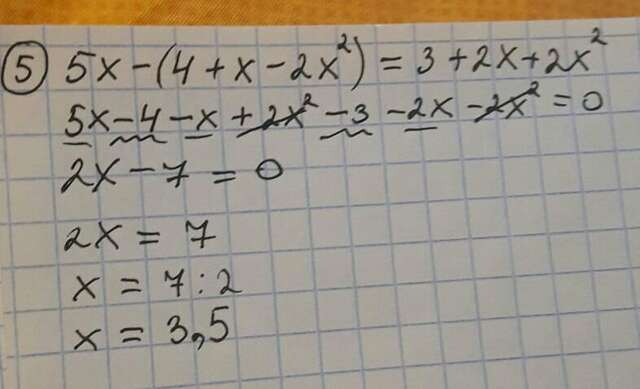 ⑤ 5x-(4+x-2x²)=3+2x+2x²
5x-4-x+2x²-3-2x-2x²=0
2x-7=0
2x=7
x=7:2
x=3,5